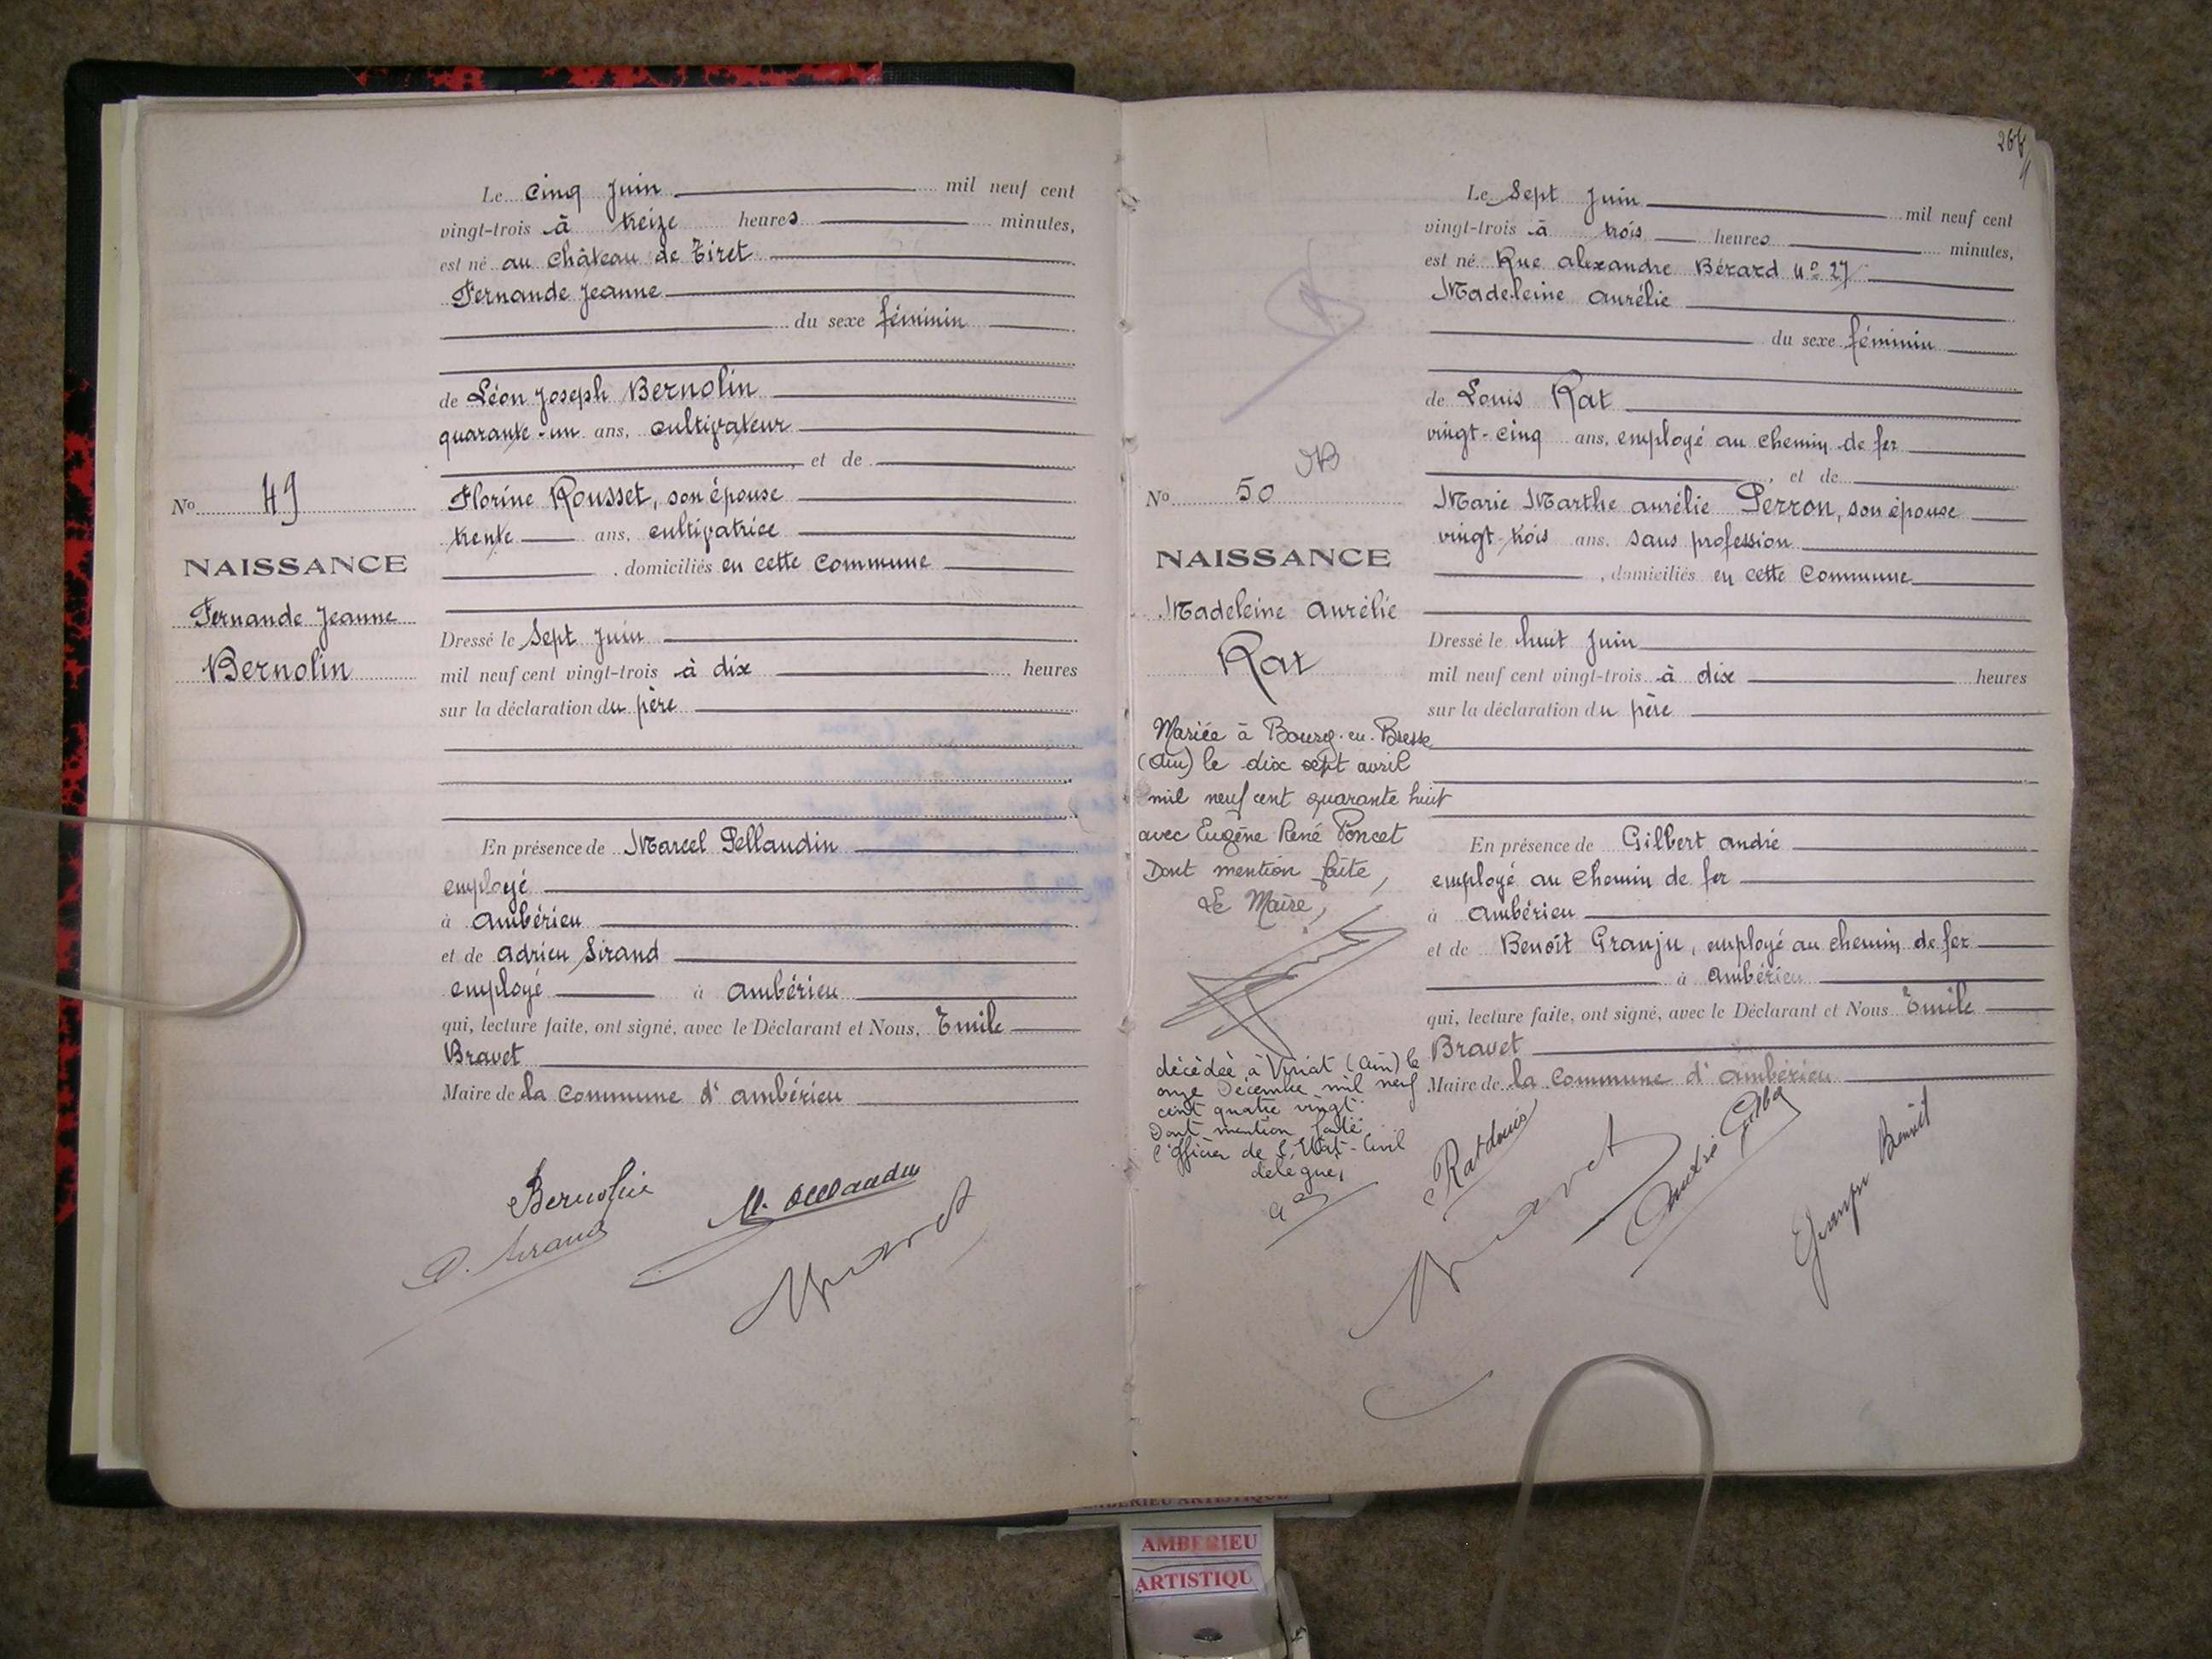 Le cinq Juin mil neuf cent
vingt-trois à treize heures minutes,
est né au château de Tiret
Fernande Jeanne
du sexe féminin
de Léon Joseph Bernolin
quarante-un ans, cultivateur
, et de
Florine Rousset, son épouse
trente ans, cultivatrice
, domiciliés en cette Commune
Dressé le Sept Juin
mil neuf cent vingt-trois à dix heures
sur la déclaration du père
En présence de Marcel Pellaudin
employé
à Ambérieu
et de Adrien Sirand
employé à Ambérieu
qui, lecture faite, ont signé, avec le Déclarant et Nous, Emile
Bravet
Maire de la Commune d'Ambérieu
No 49
NAISSANCE
Fernande Jeanne
Bernolin
Bernolin
A. Sirand
Bravet
Le Sept Juin mil neuf cent
vingt-trois à trois heures minutes,
est né Rue Alexandre Bérard No 27
Madeleine Aurélie
du sexe féminin
de Louis Rat
vingt-cinq ans, employé au chemin de fer
, et de
Marie Marthe Aurélie Perron, son épouse
vingt-trois ans, sans profession
, domiciliés en cette Commune
Dressé le huit Juin
mil neuf cent vingt-trois à dix heures
sur la déclaration du père
En présence de Gilbert André
employé au chemin de fer
à Ambérieu
et de Benoît Granju, employé au chemin de fer
à Ambérieu
qui, lecture faite, ont signé, avec le Déclarant et Nous Emile
Bravet
Maire de la Commune d'Ambérieu
No 50
NAISSANCE
Madeleine Aurélie
Rat
Mariée à Bourg-en-Bresse
(Ain) le dix sept avril
mil neuf cent quarante huit
avec Eugène René Poncet
Dont mention faite,
Le Maire,
décédée à Viriat (Ain) le
onze Décembre mil neuf
cent quatre vingt.
Dont mention faite.
l'officier de l'Etat-Civil
délégué,
Rat Louis
Bravet
André Gilb
Granju Benoît
AMBERIEU ARTISTIQUE
AMBERIEU
ARTISTIQU